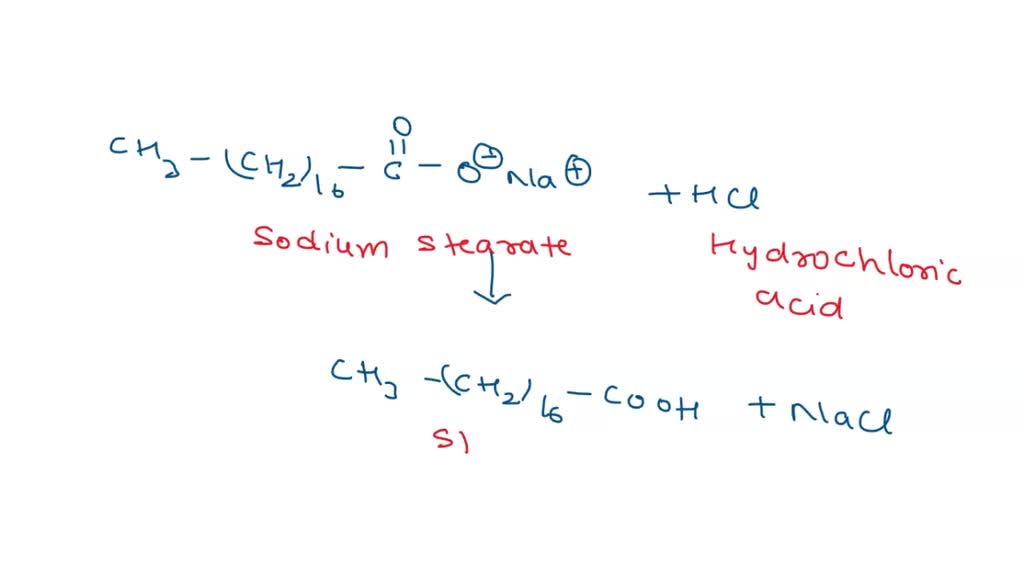 O
CH3 – (CH2)16 – C – O⊖ Na⊕ + HCl
Sodium stearate Hydrochloric
acid
CH3 – (CH2)16 – COOH + NaCl
S